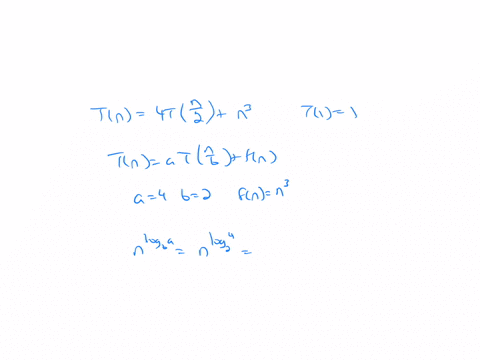 T(n) = 4T(n/2) + n³ T(1) = 1
T(n) = aT(n/b) + f(n)
a=4 b=2 f(n)=n³
n^(log_b a) = n^(log_2 4) =